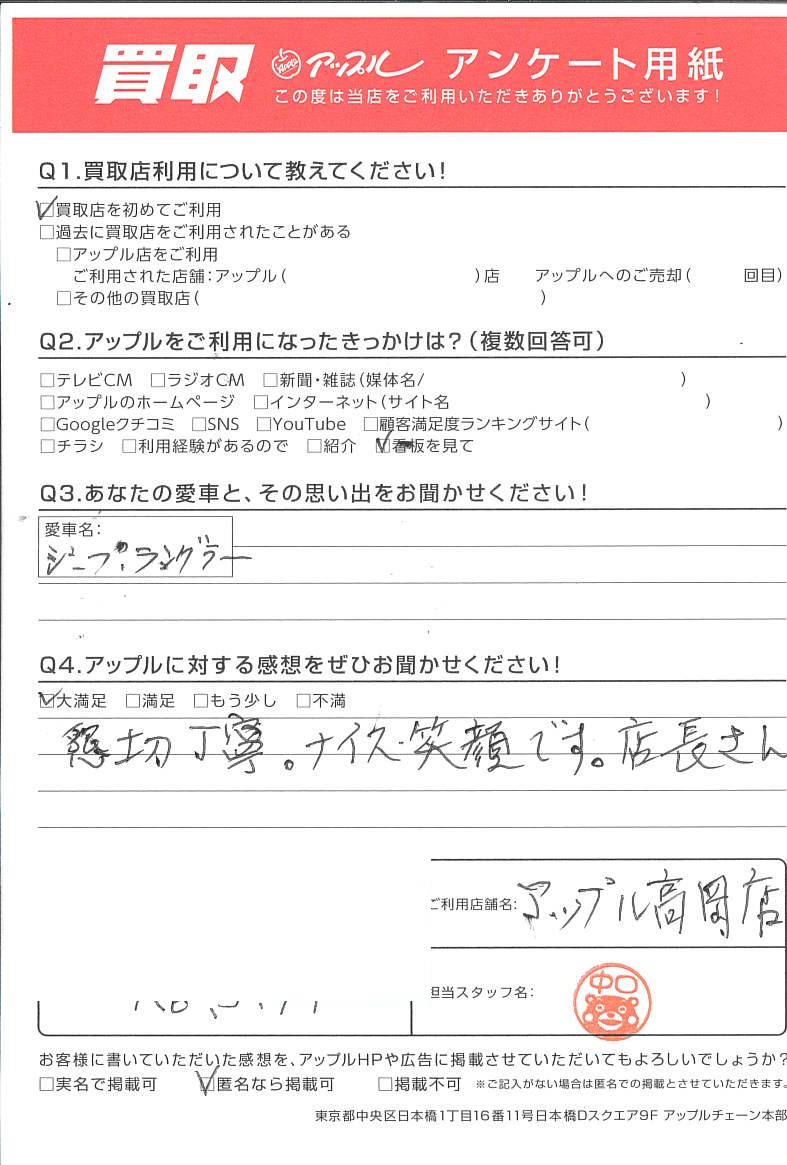 買取 アップル アンケート用紙
この度は当店をご利用いただきありがとうございます!
Q1.買取店利用について教えてください!
☑買取店を初めてご利用
□過去に買取店をご利用されたことがある
□アップル店をご利用
ご利用された店舗:アップル( )店 アップルへのご売却( 回目)
□その他の買取店( )
Q2.アップルをご利用になったきっかけは?(複数回答可)
□テレビCM □ラジオCM □新聞・雑誌(媒体名/ )
□アップルのホームページ □インターネット(サイト名 )
□Googleクチコミ □SNS □YouTube □顧客満足度ランキングサイト( )
□チラシ □利用経験があるので □紹介 ☑看板を見て
Q3.あなたの愛車と、その思い出をお聞かせください!
愛車名:
ジープ・ラングラー
Q4.アップルに対する感想をぜひお聞かせください!
☑大満足 □満足 □もう少し □不満
懇切丁寧。ナイス・笑顔です。店長さん
ご利用店舗名: アップル高岡店
担当スタッフ名: 中口
お客様に書いていただいた感想を、アップルHPや広告に掲載させていただいてもよろしいでしょうか?
□実名で掲載可 ☑匿名なら掲載可 □掲載不可 ※ご記入がない場合は匿名での掲載とさせていただきます。
東京都中央区日本橋1丁目16番11号日本橋Dスクエア9F アップルチェーン本部